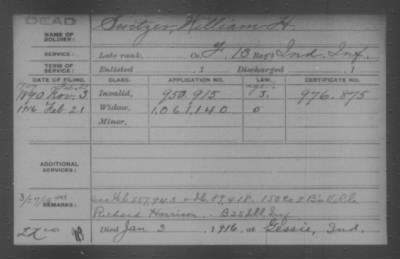 DEAD
Switzer, William H.
NAME OF SOLDIER:
SERVICE: Late rank, Co. F, 13 Reg't Ind. Inf.
TERM OF SERVICE: Enlisted , 1 Discharged , 1
DATE OF FILING. CLASS. APPLICATION NO. CERTIFICATE NO.
1890 Nov. 3 Invalid, 950.915 976.875
1916 Feb 21 Widow, 1,061,140
Minor,
ADDITIONAL SERVICES:
REMARKS:
Richard Harrison
Died Jan 3 1916, at Gessie, Ind.